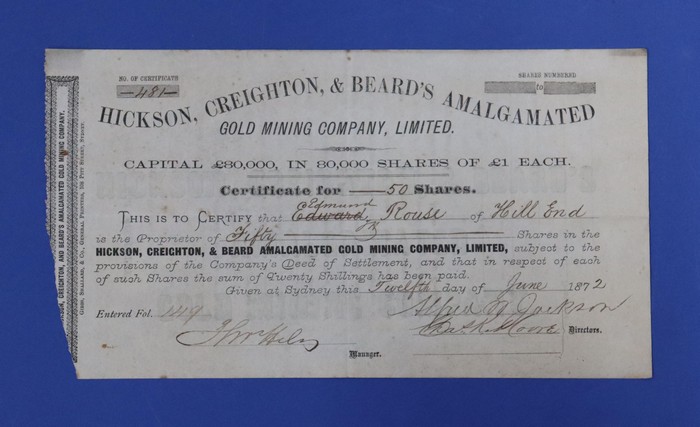 NO. OF CERTIFICATE
481
SHARES NUMBERED
to
HICKSON, CREIGHTON, & BEARD'S AMALGAMATED
GOLD MINING COMPANY, LIMITED.
CAPITAL £80,000, IN 80,000 SHARES OF £1 EACH.
Certificate for 50 Shares.
Edmund
THIS IS TO CERTIFY that Edward Rouse of Hill End
is the Proprietor of Fifty Shares in the
HICKSON, CREIGHTON, & BEARD AMALGAMATED GOLD MINING COMPANY, LIMITED, subject to the
provisions of the Company's Deed of Settlement, and that in respect of each
of such Shares the sum of Twenty Shillings has been paid.
Given at Sydney this Twelfth day of June 1872
Entered Fol. 149
Alfred Jackson
Moore Directors.
Manager.
HICKSON, CREIGHTON, AND BEARD'S AMALGAMATED GOLD MINING COMPANY,
GIBBS, SHALLARD, & CO., GENERAL PRINTERS, 108 PITT STREET, SYDNEY.